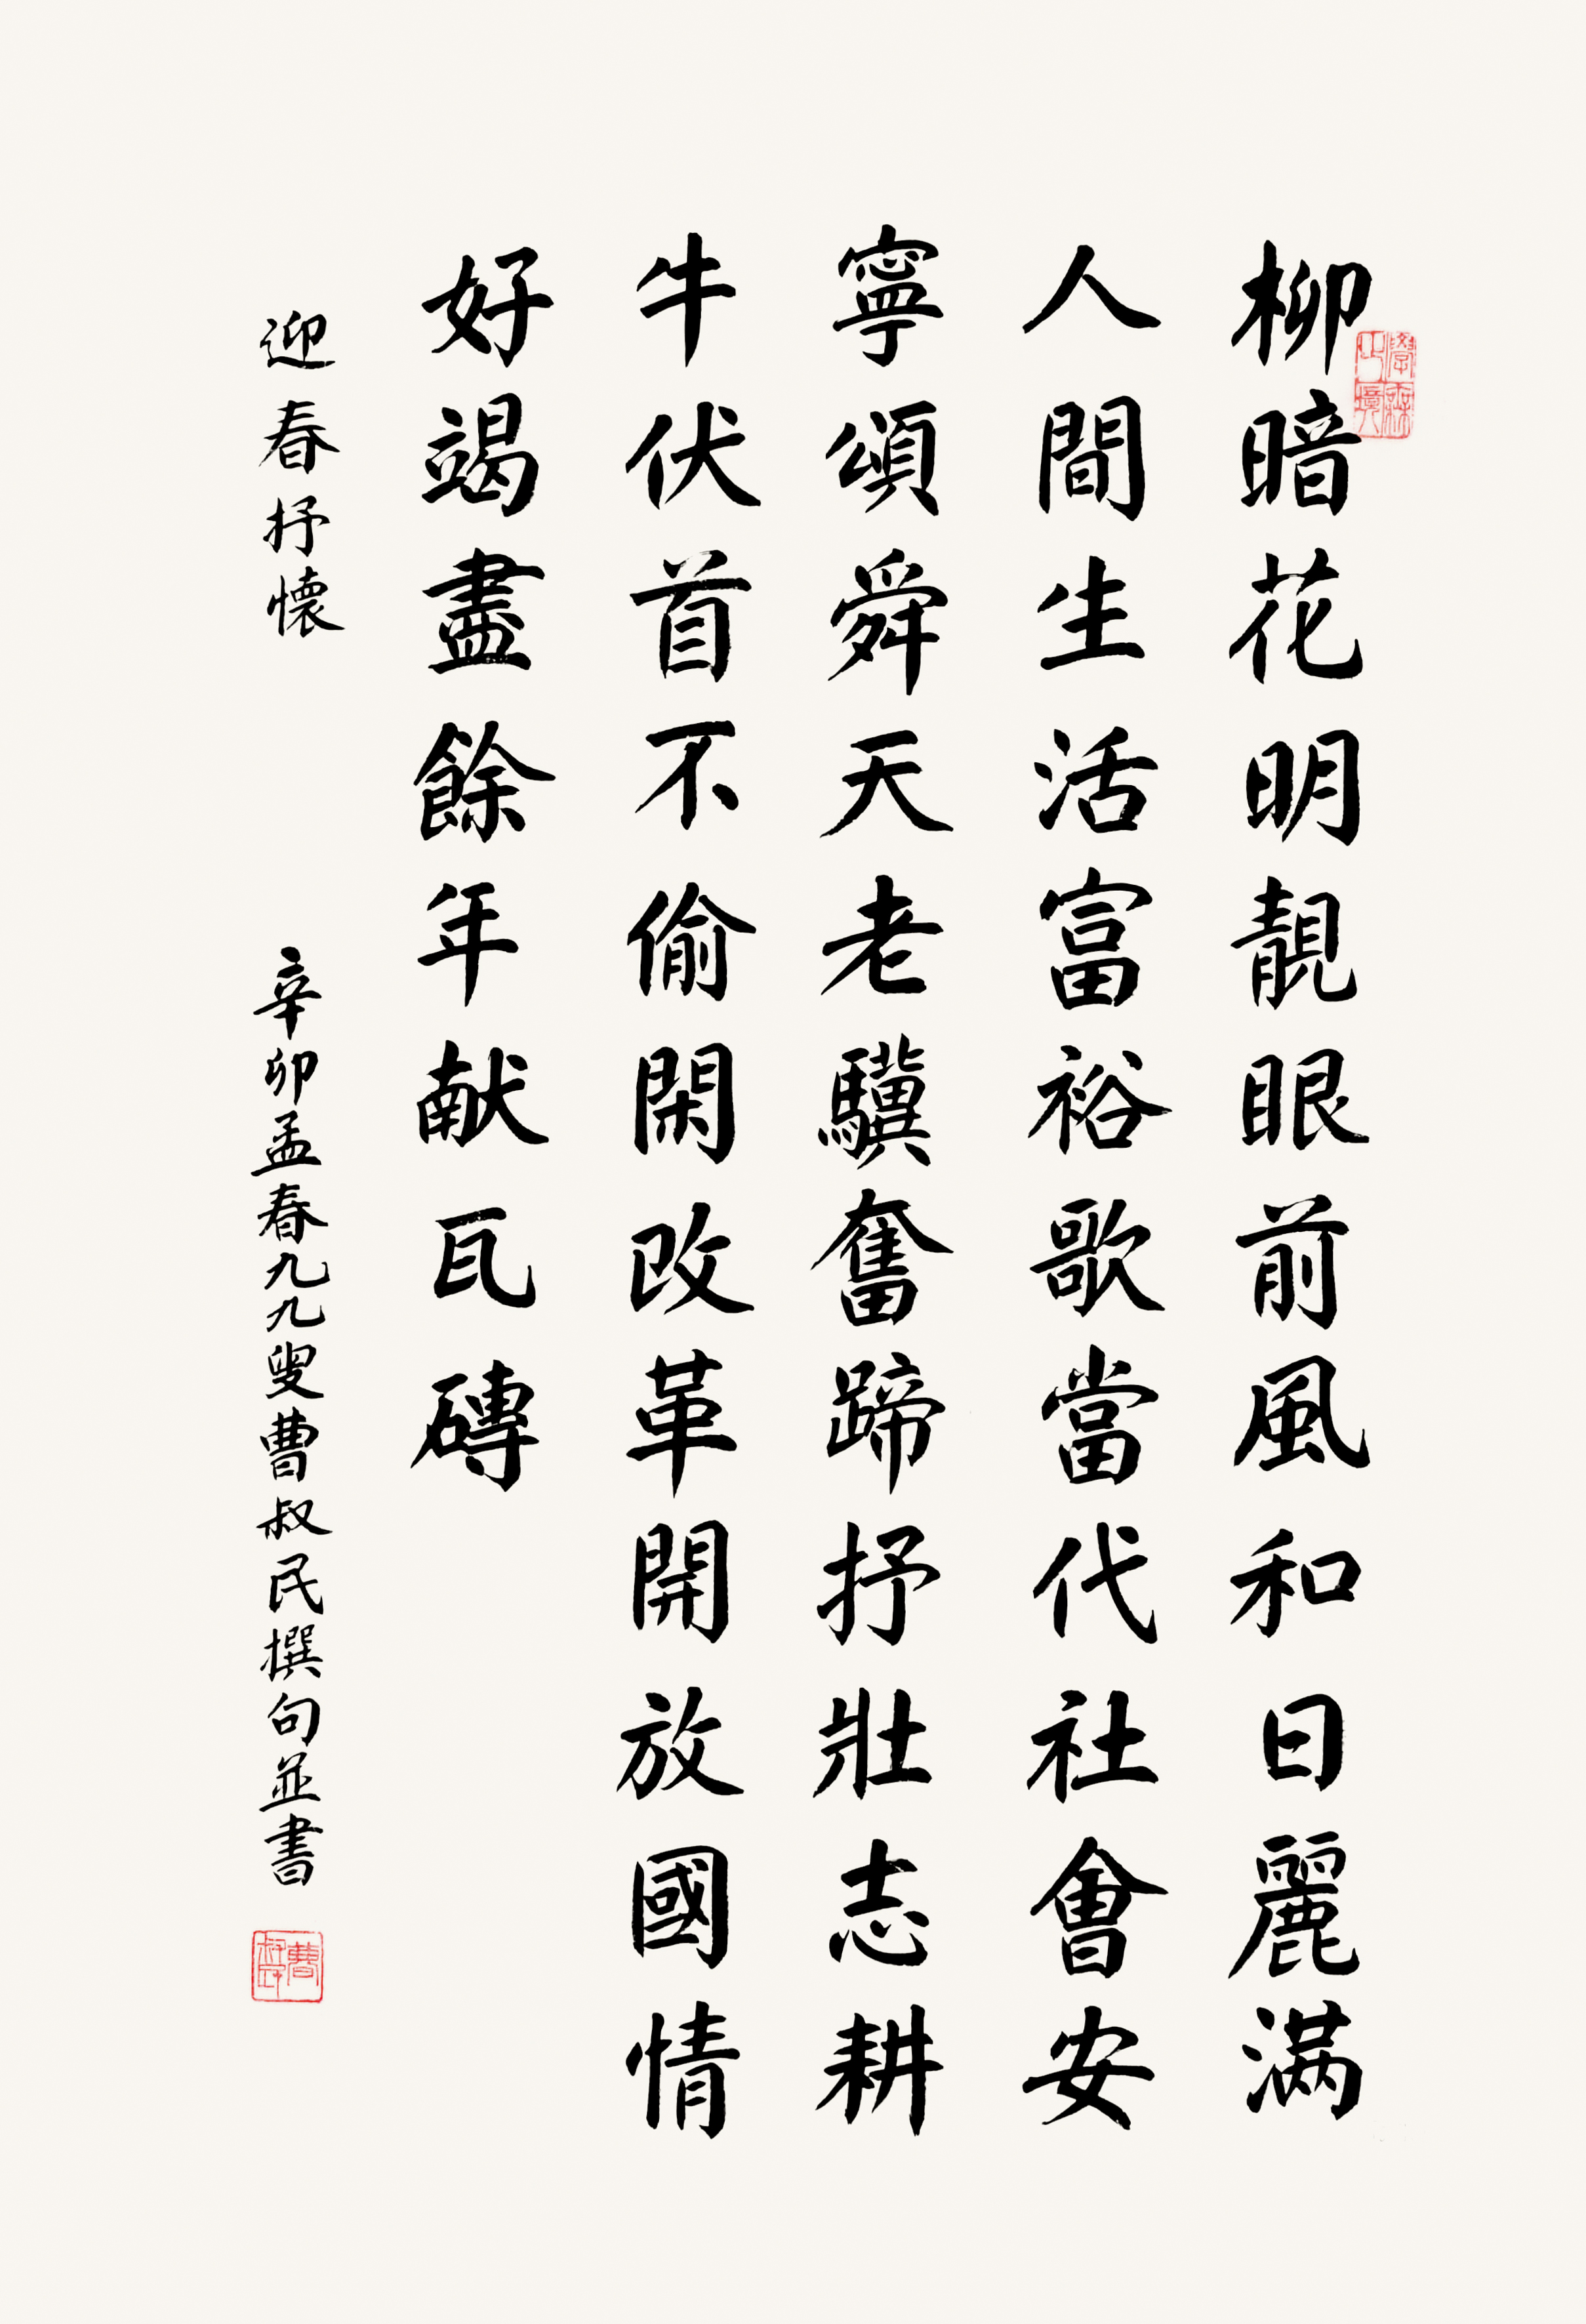 柳暗花明靚眼前風和日麗满
人間生活富裕歌當代社會安
寧頌舜天老驥奮蹄抒壯志耕
牛伏首不偷閑改革開放國情
好竭盡餘年献瓦磚
迎春抒懷
辛卯孟春九九叟曹叔民撰句並書